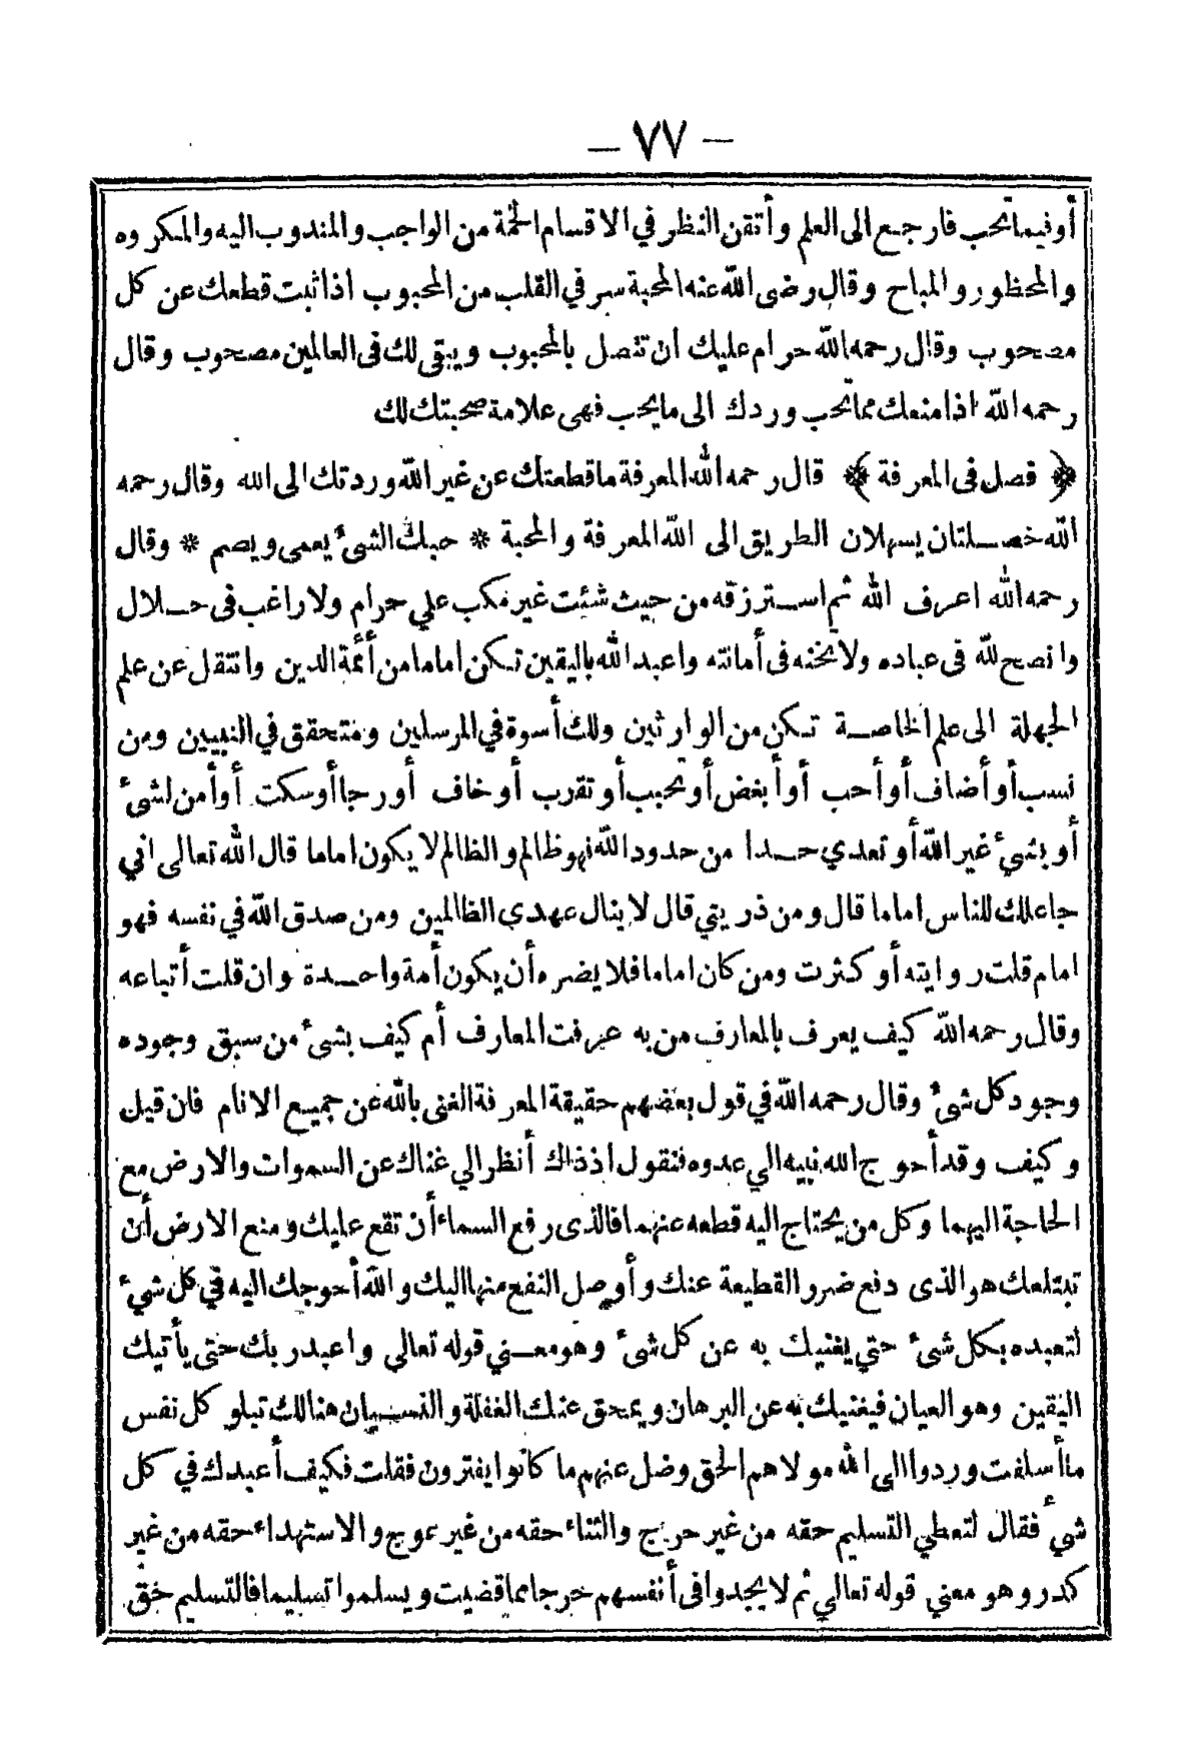 — ٧٧ —
أو فيما تحب فارجع الى العلم وأتقن النظر في الاقسام الخمة من الواجب والمندوب اليه والمكروه
والمحظور والمباح وقال رضى الله عنه المحبة سر في القلب من المحبوب اذا ثبت قطعك عن كل
مصحوب وقال رحمه الله حرام عليك ان تتصل بالمحبوب ويبقى لك فى العالمين مصحوب وقال
رحمه الله اذا منعك مما تحب وردك الى ما يحب فهى علامة صحبتك لك
﴿ فصل فى المعرفة ﴾ قال رحمه الله المعرفة ما قطعتك عن غير الله وردتك الى الله وقال رحمه
الله خصلتان يسهلان الطريق الى الله المعرفة والمحبة * حبك الشئ يعمى ويصم * وقال
رحمه الله اعرف الله ثم استرزقه من حيث شئت غير مكب علي حرام ولا راغب فى حلال
وانصح لله فى عباده ولا تخنه فى أمانته واعبد الله باليقين تكن اماما من أئمة الدين وانتقل عن علم
الجهلة الى علم الخاصة تكن من الوارثين ولك أسوة في المرسلين ومتحقق في النبيين ومن
نسب أو أضاف أو أحب أو أبغض أو تحبب أو تقرب أو خاف أو رجا أو سكت أو أمن لشئ
أو بشئ غير الله أو تعدي حدا من حدود الله فهو ظالم والظالم لا يكون اماما قال الله تعالى اني
جاعلك للناس اماما قال ومن ذريتي قال لا ينال عهدي الظالمين ومن صدق الله في نفسه فهو
امام قلت روايته أو كثرت ومن كان اماما فلا يضره أن يكون أمة واحدة وان قلت أتباعه
وقال رحمه الله كيف يعرف بالمعارف من به عرفت المعارف أم كيف بشئ من سبق وجوده
وجود كل شئ وقال رحمه الله في قول بعضهم حقيقة المعرفة الغنى بالله عن جميع الانام فان قيل
وكيف وقد أحوج الله نبيه الي عدوه فنقول اذ ذاك أنظر الي غناك عن السموات والارض مع
الحاجة اليهما وكل من يحتاج اليه قطعه عنهما فالذى رفع السماء أن تقع عليك ومنع الارض أن
تبتلعك هو الذى دفع ضر والقطيعة عنك وأوصل النفع منها اليك والله أحوجك اليه في كل شئ
لتعبده بكل شئ حتي يغنيك به عن كل شئ وهو معني قوله تعالي واعبد ربك حتى يأتيك
اليقين وهو العيان فيغنيك به عن البرهان ويمحق عنك الغفلة والنسيان هنالك تبلو كل نفس
ما أسلفت وردوا الى الله مولاهم الحق وضل عنهم ما كانوا يفترون فقلت فكيف أعبدك في كل
شئ فقال لتعطي التسليم حقه من غير حرج والثناء حقه من غير عوج والاستهداء حقه من غير
كدر وهو معني قوله تعالي ثم لا يجدوا فى أنفسهم حرجا مما قضيت ويسلموا تسليما فالتسليم حق